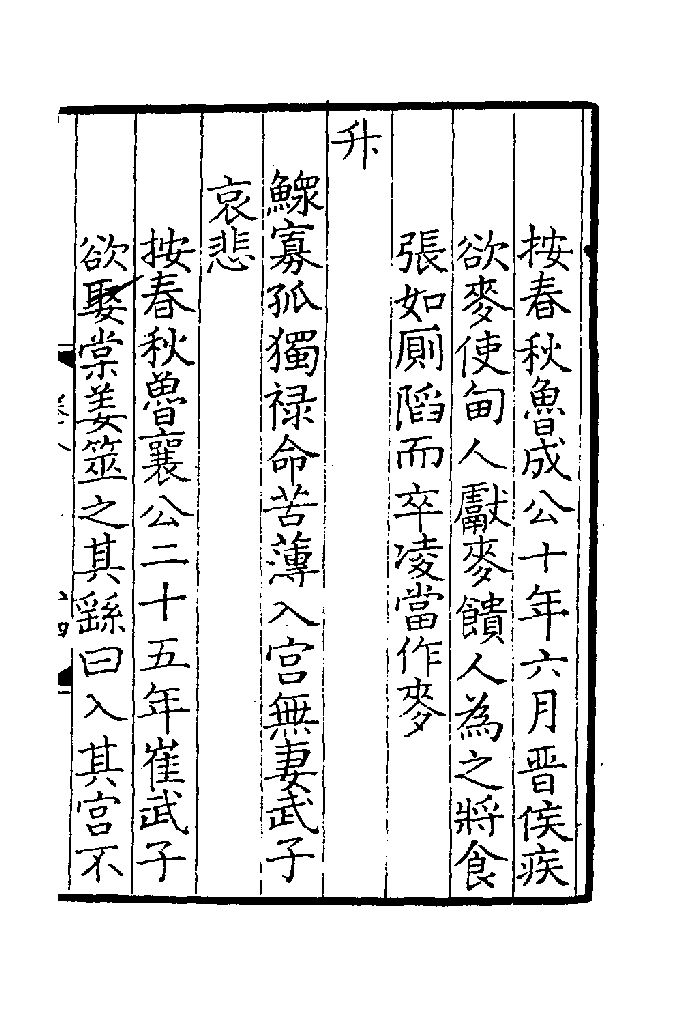 按春秋魯成公十年六月晉侯疾
欲麥使甸人獻麥饋人為之將食
張如厠陷而卒凌當作麥
升
鰥寡孤獨禄命苦薄入宫無妻武子
哀悲
按春秋魯襄公二十五年崔武子
欲娶棠姜筮之其繇曰入其宫不